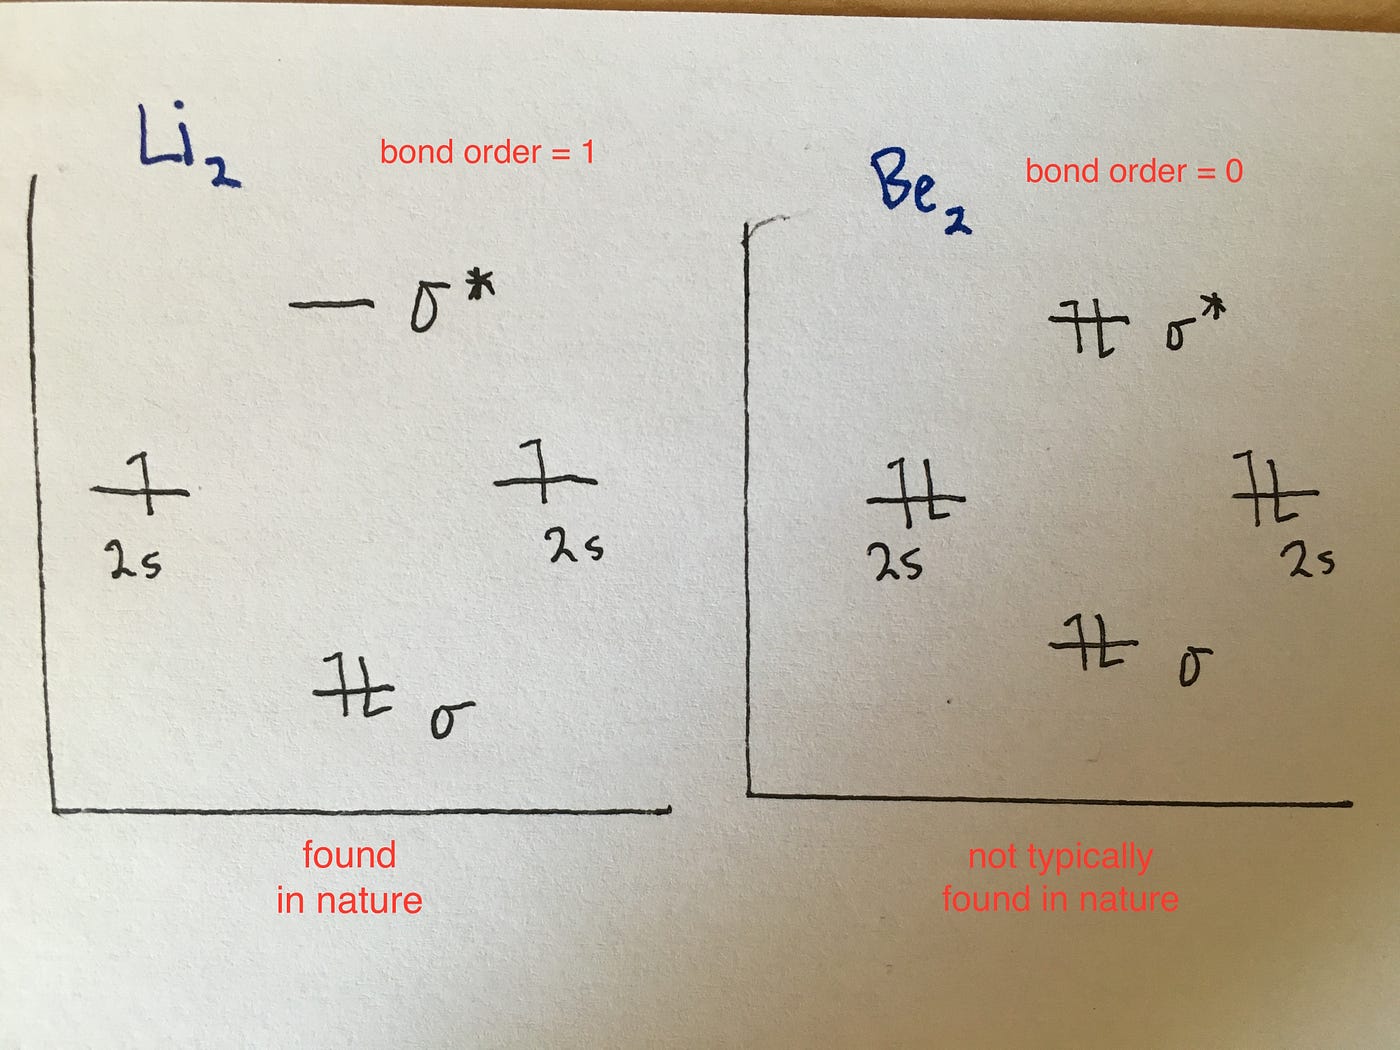 Li₂
bond order = 1
σ*
2s
2s
σ
found
in nature
Be₂
bond order = 0
σ*
2s
2s
σ
not typically
found in nature